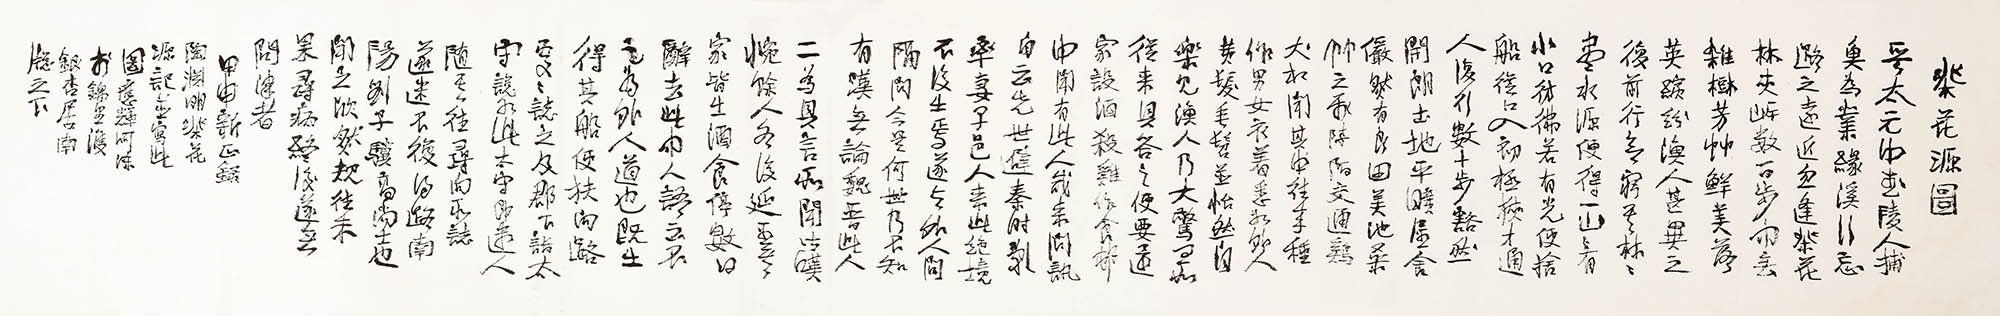 桃花源圖
晉太元中武陵人捕
魚為業緣溪行忘
路之遠近忽逢桃花
林夾岸數百步中無
雜樹芳艸鮮美落
英繽紛漁人甚異之
復前行欲窮其林〻
盡水源便得一山〻有
小口彷彿若有光便捨
船從口入初極狹才通
人復行數十步豁然
開朗土地平曠屋舍
儼然有良田美池桑
竹之屬阡陌交通雞
犬相聞其中往來種
作男女衣着悉如外人
黃髮垂髫並怡然自
樂見漁人乃大驚問所
從來具答之便要還
家設酒殺雞作食村
中聞有此人咸來問訊
自云先世避秦時亂
率妻子邑人來此絕境
不復出焉遂與外人間
隔問今是何世乃不知
有漢無論魏晉此人
一一為具言所聞皆嘆
惋餘人各復延至其
家皆出酒食停數日
辭去此中人語云不
足為外人道也既出
得其船便扶向路
處〻誌之及郡下詣太
守說如此太守即遣人
隨其往尋向所誌
遂迷不復得路南
陽劉子驥高尚士也
聞之欣然規往未
果尋病終後遂無
問津者
甲申新正錄
陶淵明桃花
源記並寫此
圖應輝
於錦里後
銀杏居南
牕之下